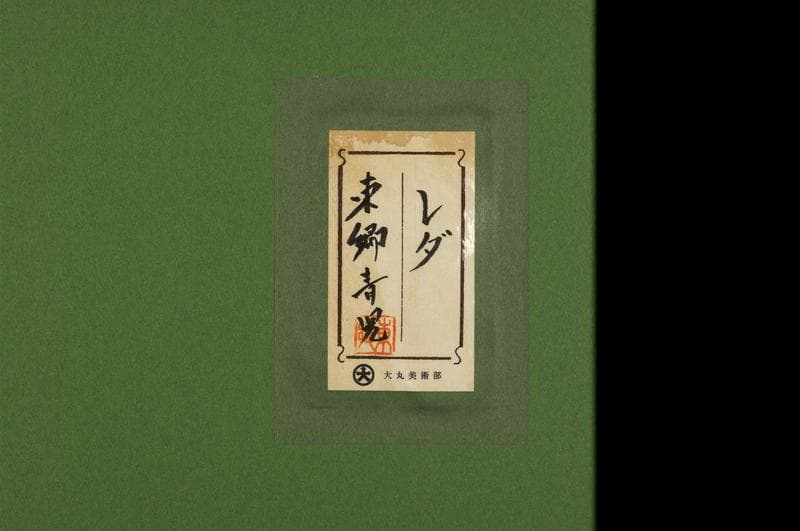 レダ
東郷青児
大 大丸美術部